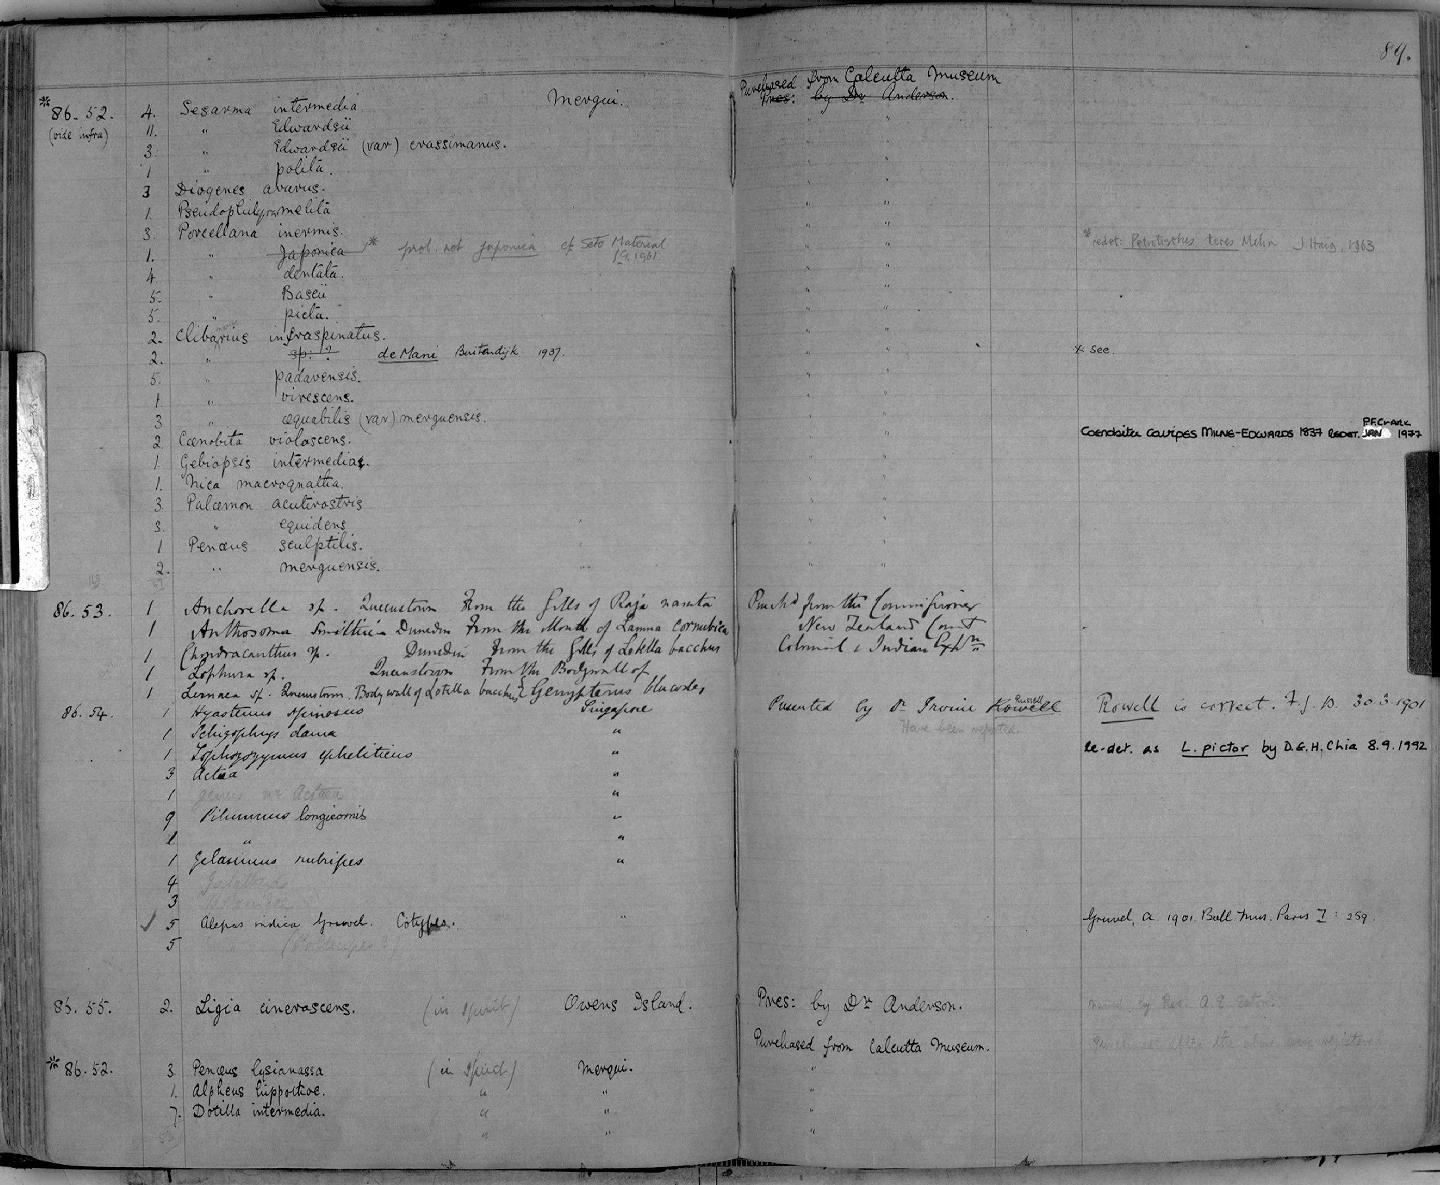 89.
*86.52. 4. Sesarma intermedia Mergui. Purchased from Calcutta Museum
(vide infra) 11. " Edwardsii Pres: by Dr Anderson.
3. " Edwardsii (var) crassimanus. " "
1 " polita. " "
3 Diogenes avarus. " "
1. " "
3. Porcellana inermis. " "
1. " Japonica * prob. not japonica cf Seto Material " " * redet: teres Mehn J. Haig, 1963
1961
4. " dentata. " "
5. " " "
5. " picta. " "
2. Clibanarius infraspinatus. " "
2. " sp: ? de Mani Buitendijk 1937. " " * see.
5. " padavensis. " "
1 " virescens. " "
3 " æquabilis (var) merguensis. " "
2 Cœnobita violascens. " " Coenobita cavipes MILNE-EDWARDS 1837 REDET. P.F.CLARK JAN 1977
1. Gebiopsis intermedia. " "
1. Nica macrognatha. " "
3. Palæmon acutirostris " "
3. " equidens " "
1 Penæus sculptilis. " "
2. " merguensis. " "
86.53. 1 Anchorella sp. Queenstown From the Gills of Raja nasuta Purch'd from the Commissioner
1 Anthosoma Smithii Dunedin From the Mouth of Lamna cornubica New Zealand Court
1 Chondracanthus sp. Dunedin From the Gills of Lotella bacchus Colonial & Indian Exhn
1 Lophura sp. Queenstown From the Bodywall of
1 Lernaea sp. Queenstown. Bodywall of Lotella bacchus & Genypterus blacodes
86.54. 1 Hyastenus spinosus Singapore Presented by Dr Irvine Rowell Rowell Rowell is correct. F.J.B. 30.3.1901
1 Schizophrys dama " Have been reported.
1 Lophozozymus epheliticus " Re-det. as L. pictor by D.G.H. Chia 8.9.1992
3 Actæa "
1 genus nr Actæa "
9 Pilumnus longicornis "
1 " "
1 Gelasimus rubripes "
4
3
✓ 5 Alepas indica Gruvel. Cotypes. " Gruvel, A. 1901. Bull. Mus. Paris 7: 259.
5
86.55. 2. Ligia cinerascens. (in spirit) Owens Island. Pres: by Dr Anderson.
Purchased from Calcutta Museum.
*86.52. 3 Penæus lysianassa (in spirit) Mergui. "
1. Alpheus hippothoe. " " "
7. Dotilla intermedia. " " "
" " "